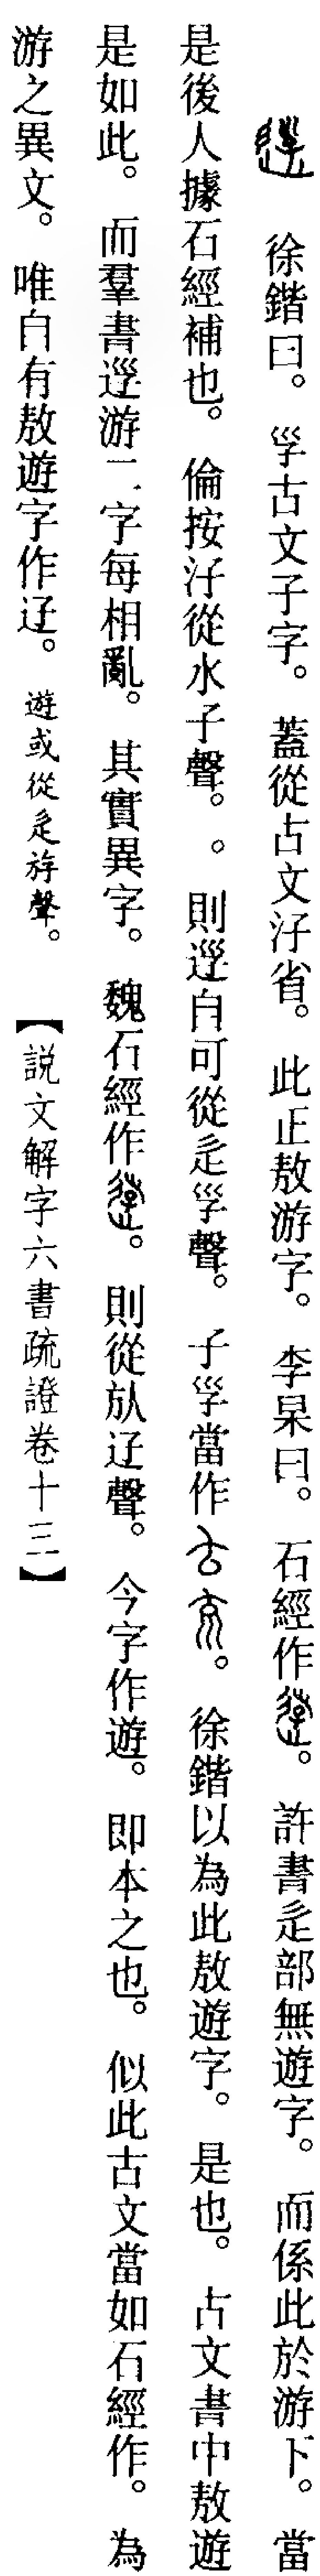 徐鍇曰。𡥜古文子字。蓋從古文汓省。此正敖游字。李杲曰。石經作。許書辵部無遊字。而係此於游下。當
是後人據石經補也。倫按汓從水子聲。。則𨒰自可從辵𡥜聲。子𡥜當作。徐鍇以為此敖遊字。是也。古文書中敖遊
是如此。而羣書𨒰游二字每相亂。其實異字。魏石經作。則從㫃辸聲。今字作遊。即本之也。似此古文當如石經作。為
游之異文。唯自有敖遊字作辸。遊或從辵斿聲。【說文解字六書疏證卷十三】